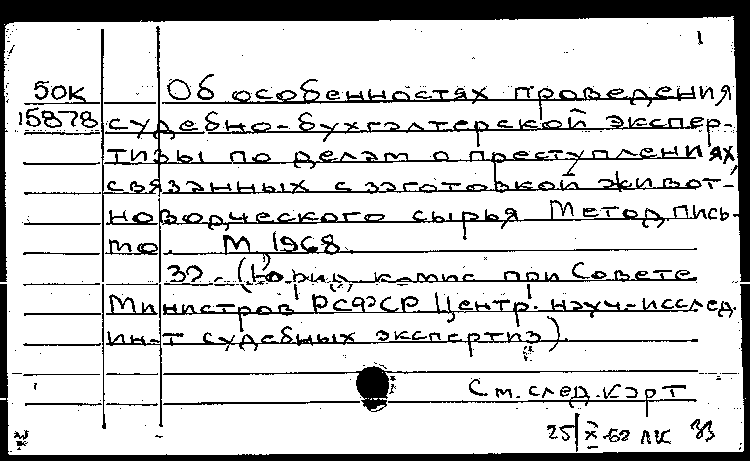 1
50К Об особенностях проведения
15878 судебно-бухгалтерской экспер-
тизы по делам о преступлениях,
связанных с заготовкой живот-
новодческого сырья Метод. пись-
мо. М, 1968.
32. (Юрид. комис при Совете
Министров РСФСР Центр. науч-исслед.
ин-т судебных экспертиз).
См. след. карт
25/X